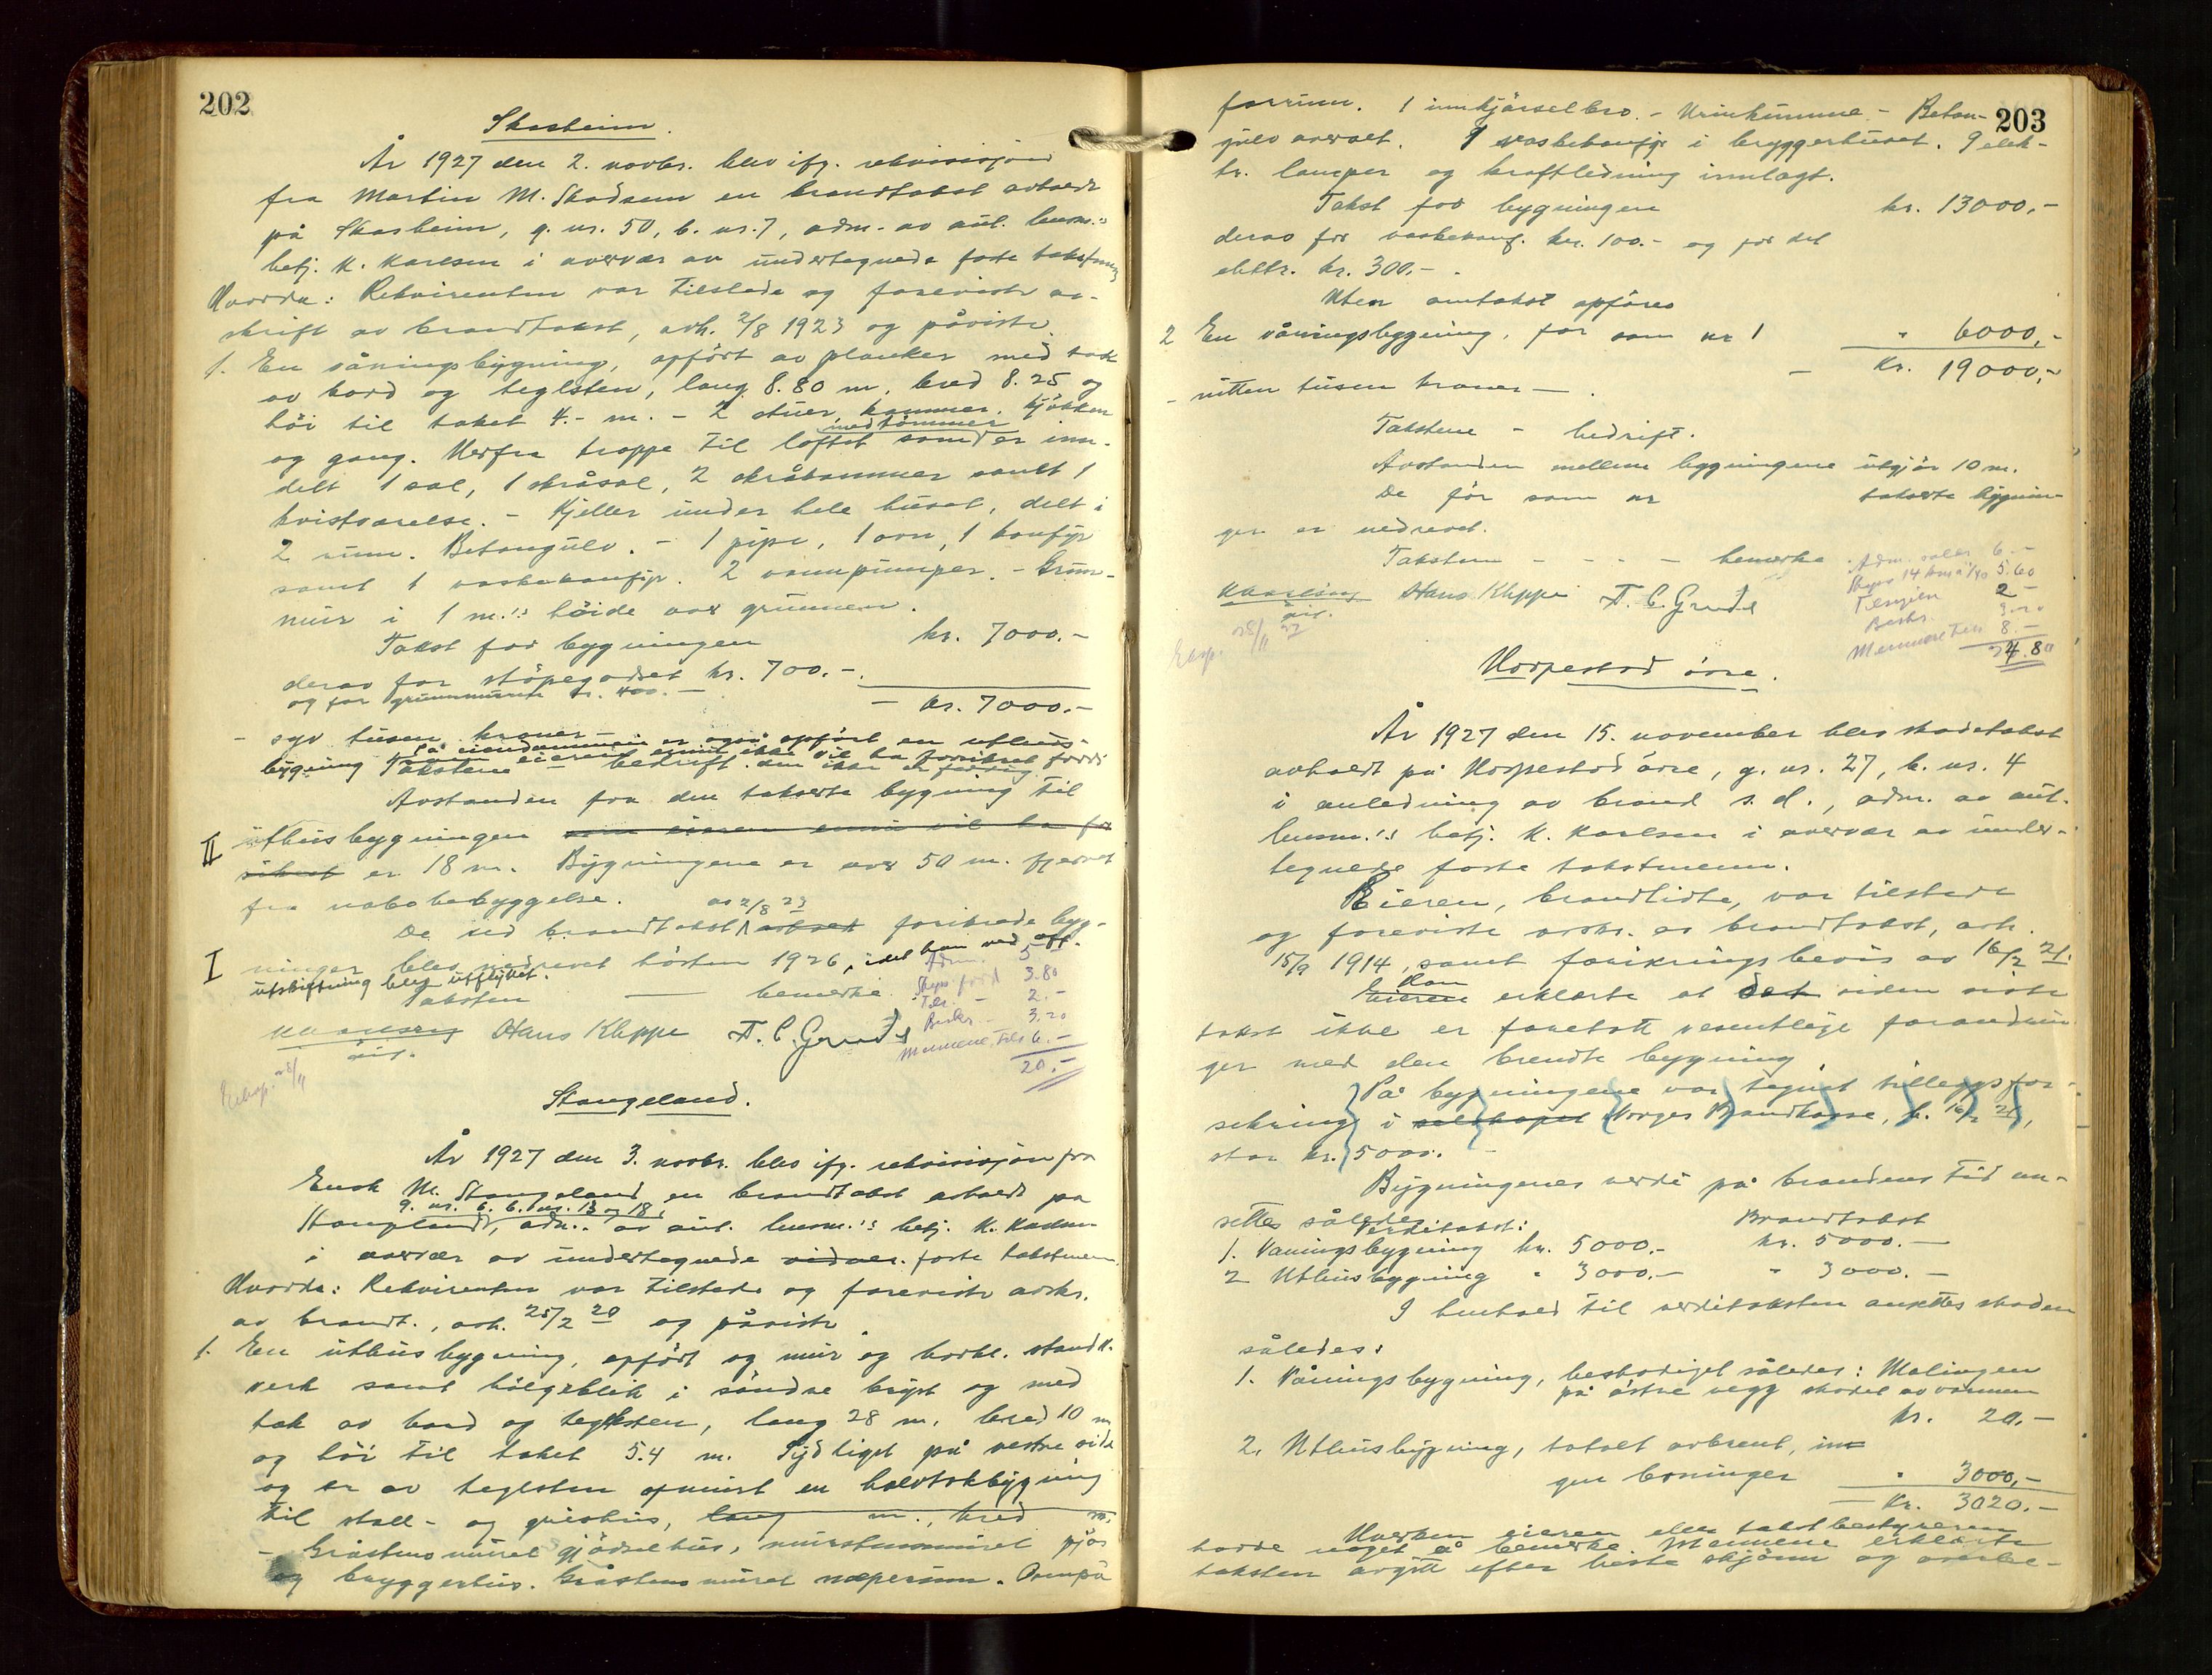 202
Skasheim.
År 1927 den 2. novbr. blev ifg. rekvisisjon
fra Martin M. Skadsem en brandtakst avholdt
på Skasheim, g. nr. 50, b. nr. 7, adm. av aut. lensm.s
betj. K. Karlsen i overvær av undertegnede faste takstmenn
Hvorda: Rekvirenten var tilstede og foreviste av-
skrift av brandtakst, avh. 2/8 1923 og påviste.
1. En våningsbygning, opført av planker med tak
av bord og teglsten, lang 8.80 m, bred 8.25 og
höi til taket 4.- m. - 2 stuer, kammer, kjökken
og gang. Herfra trappe til loftet som med tömmer er inn-
delt 1 sal, 1 skråsal, 2 skråkammer samt 1
kvistværelse. - Kjeller under hele huset, delt i
2 rum. Betongulv. - 1 pipe, 1 ovn, 1 komfyr
samt 1 vaskekomfyr. 2 vannpumper. - Grun-
mur i 1 m.'s höide over grunnen.
Takst for bygningen kr. 7000.-
derav for stöpegodset kr. 700.-
og for grunnmuren kr. 400.-
- kr. 7000.-
- syv tusen kroner -
På eiendommen er også opfört en uthus-
bygning som eieren ennu ikke vil ha forsikret fordi
den ikke er ferdig.
Takstene - bedrift.
Avstanden fra den takserte bygning til
II uthusbygningen som eieren ennu vil ha for
sikret er 18 m. Bygningene er over 50 m. fjernet
fra nabobebyggelse.
De ved brandtakst av 2/8 23 avholdt forsikrede byg-
I ninger blev nedrevet hösten 1926, idet han ved
utskiftning blev utflyttet.
Taksten - bemerke.
Adm. 5.-
Skyss 3.80
Tils. - 2.-
Beskr. - 3.20
Mennene Tils 6.-
20.-
K Karlsen Hans Kleppe T. C. Grude
aut.
Eksp. 28/11
Stangeland.
År 1927 den 3. novbr. blev ifg. rekvisisjon fra
Enok M. Stangeland en brandtakst avholdt på
Stangeland, g. nr. 6. b. nr. 13 og 18, adm. av aut. lensm.'s betj. K. Karlsen
i overvær av undertegnede vidner. faste takstmenn.
Hvorda: Rekvirenten var tilstede og foreviste avskr.
av brandt., avh. 25/2 20 og påviste
1. En uthusbygning, opfört og mur og bordkl. stand.
verk samt bölgeblik i söndre bryst og med
tak av bord og teglsten, lang 28 m, bred 10 m
og höi til taket 5.4 m. Tydliget på vestre side
og er av teglsten opmurt en halvtakbygning
til stall- og grishus, lang m., bred m.
- Gråstensmuret gjödselhus, murstensmuret fjös
og bryggerhus. Gråstensmuret næperum. Ovenpå
203
forrum. 1 innkjörselbro. - Urinkumme - Beton-
gulv overalt. 1 vaskekomfyr i bryggerhuset. 9 elek-
tr. lamper og kraftledning innlagt.
Takst for bygningen kr. 13000.-
derav for vaskekomf. kr. 100.- og for det
elektr. kr. 300.-.
Uten omtakst opföres
2 En våningsbygning, för som nr 1 " 6000.-
- Kr. 19000.-
- nitten tusen kroner -.
Takstene - bedrift.
Avstanden mellem bygningene utgjör 10 m.
De för som nr takserte bygnin-
ger er nedrevet.
Taksten - - - - bemerke.
Adm. 6.-
Skyss 14 km á /40 5.60
Tilsynen 2-
Beskr. 3.20
Mennene Tils 8.-
24.80
K Karlsen Hans Kleppe T. C. Grude
aut.
Eksp. 28/11 27
Horpestad övre.
År 1927 den 15. november blev skadetakst
avholdt på Horpestad övre, g. nr. 27, b. nr. 4
i anledning av brand s. d., adm. av aut.
lensm.'s betj. K. Karlsen i overvær av under-
tegnede faste takstmenn.
Eieren, brandlidte, var tilstede
og foreviste avskr. av brandtakst, avh.
15/9 1914, samt forsikringsbevis av 16/2 21.
Eieren Han erklærte at det siden siste
takst ikke er foretatt vesentlige forandrin-
ger med den brendte bygning.
På bygningene var tegnet tilleggsfor-
sikring i selskapet Norges Brandkasse, h. 16/2 21,
stor kr. 5000.-
Bygningenes verdi på brandens tid an-
settes således
Verditakst: Brandtakst
1. Vaningsbygning kr. 5000.- kr. 5000.-
2 Uthusbygning " 3000.- " 3000.-
I henhold til verditaksten ansettes skaden
således:
1. Våningsbygning, beskadiget således: Malingen
på östre vegg skadet av varmen
kr. 20.-
2. Uthusbygning, totalt avbrent, in-
gen levninger " 3000.-
- Kr. 3020.-
Hverken eieren eller takstbestyreren
hadde noget å bemerke. Mennene erklærte
taksten avgitt efter beste skjönn og overbe-